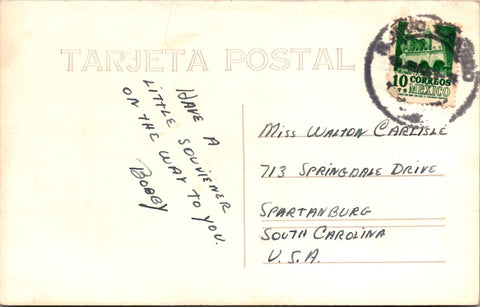 TARJETA POSTAL
10 CORREOS
MEXICO
HAVE A
LITTLE SOUVIENER
ON THE WAY TO YOU.
BOBBY
MISS WALTON CARLISLE
713 SPRINGDALE DRIVE
SPARTANBURG
SOUTH CAROLINA
U.S.A.